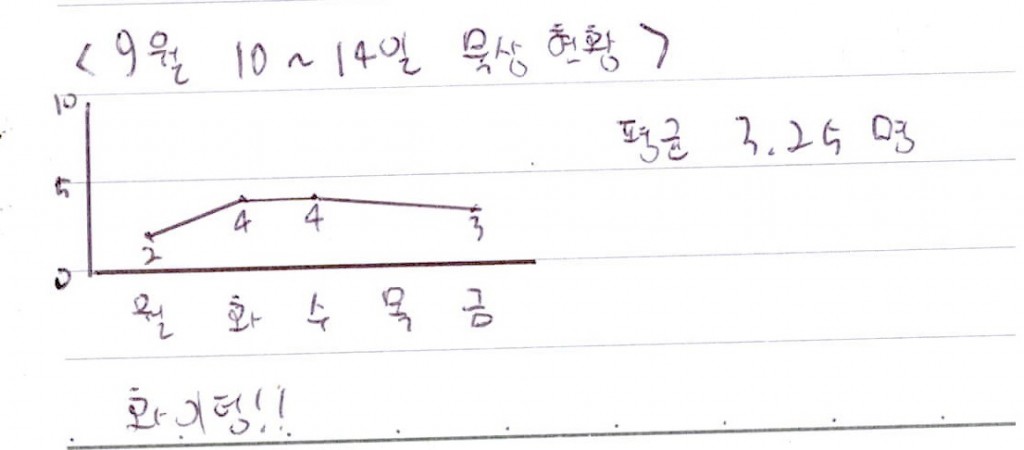 <9월 10~14일 묵상 현황>
10
평균 3.25명
5
4 4 3
2
0
월 화 수 목 금
화이팅!!